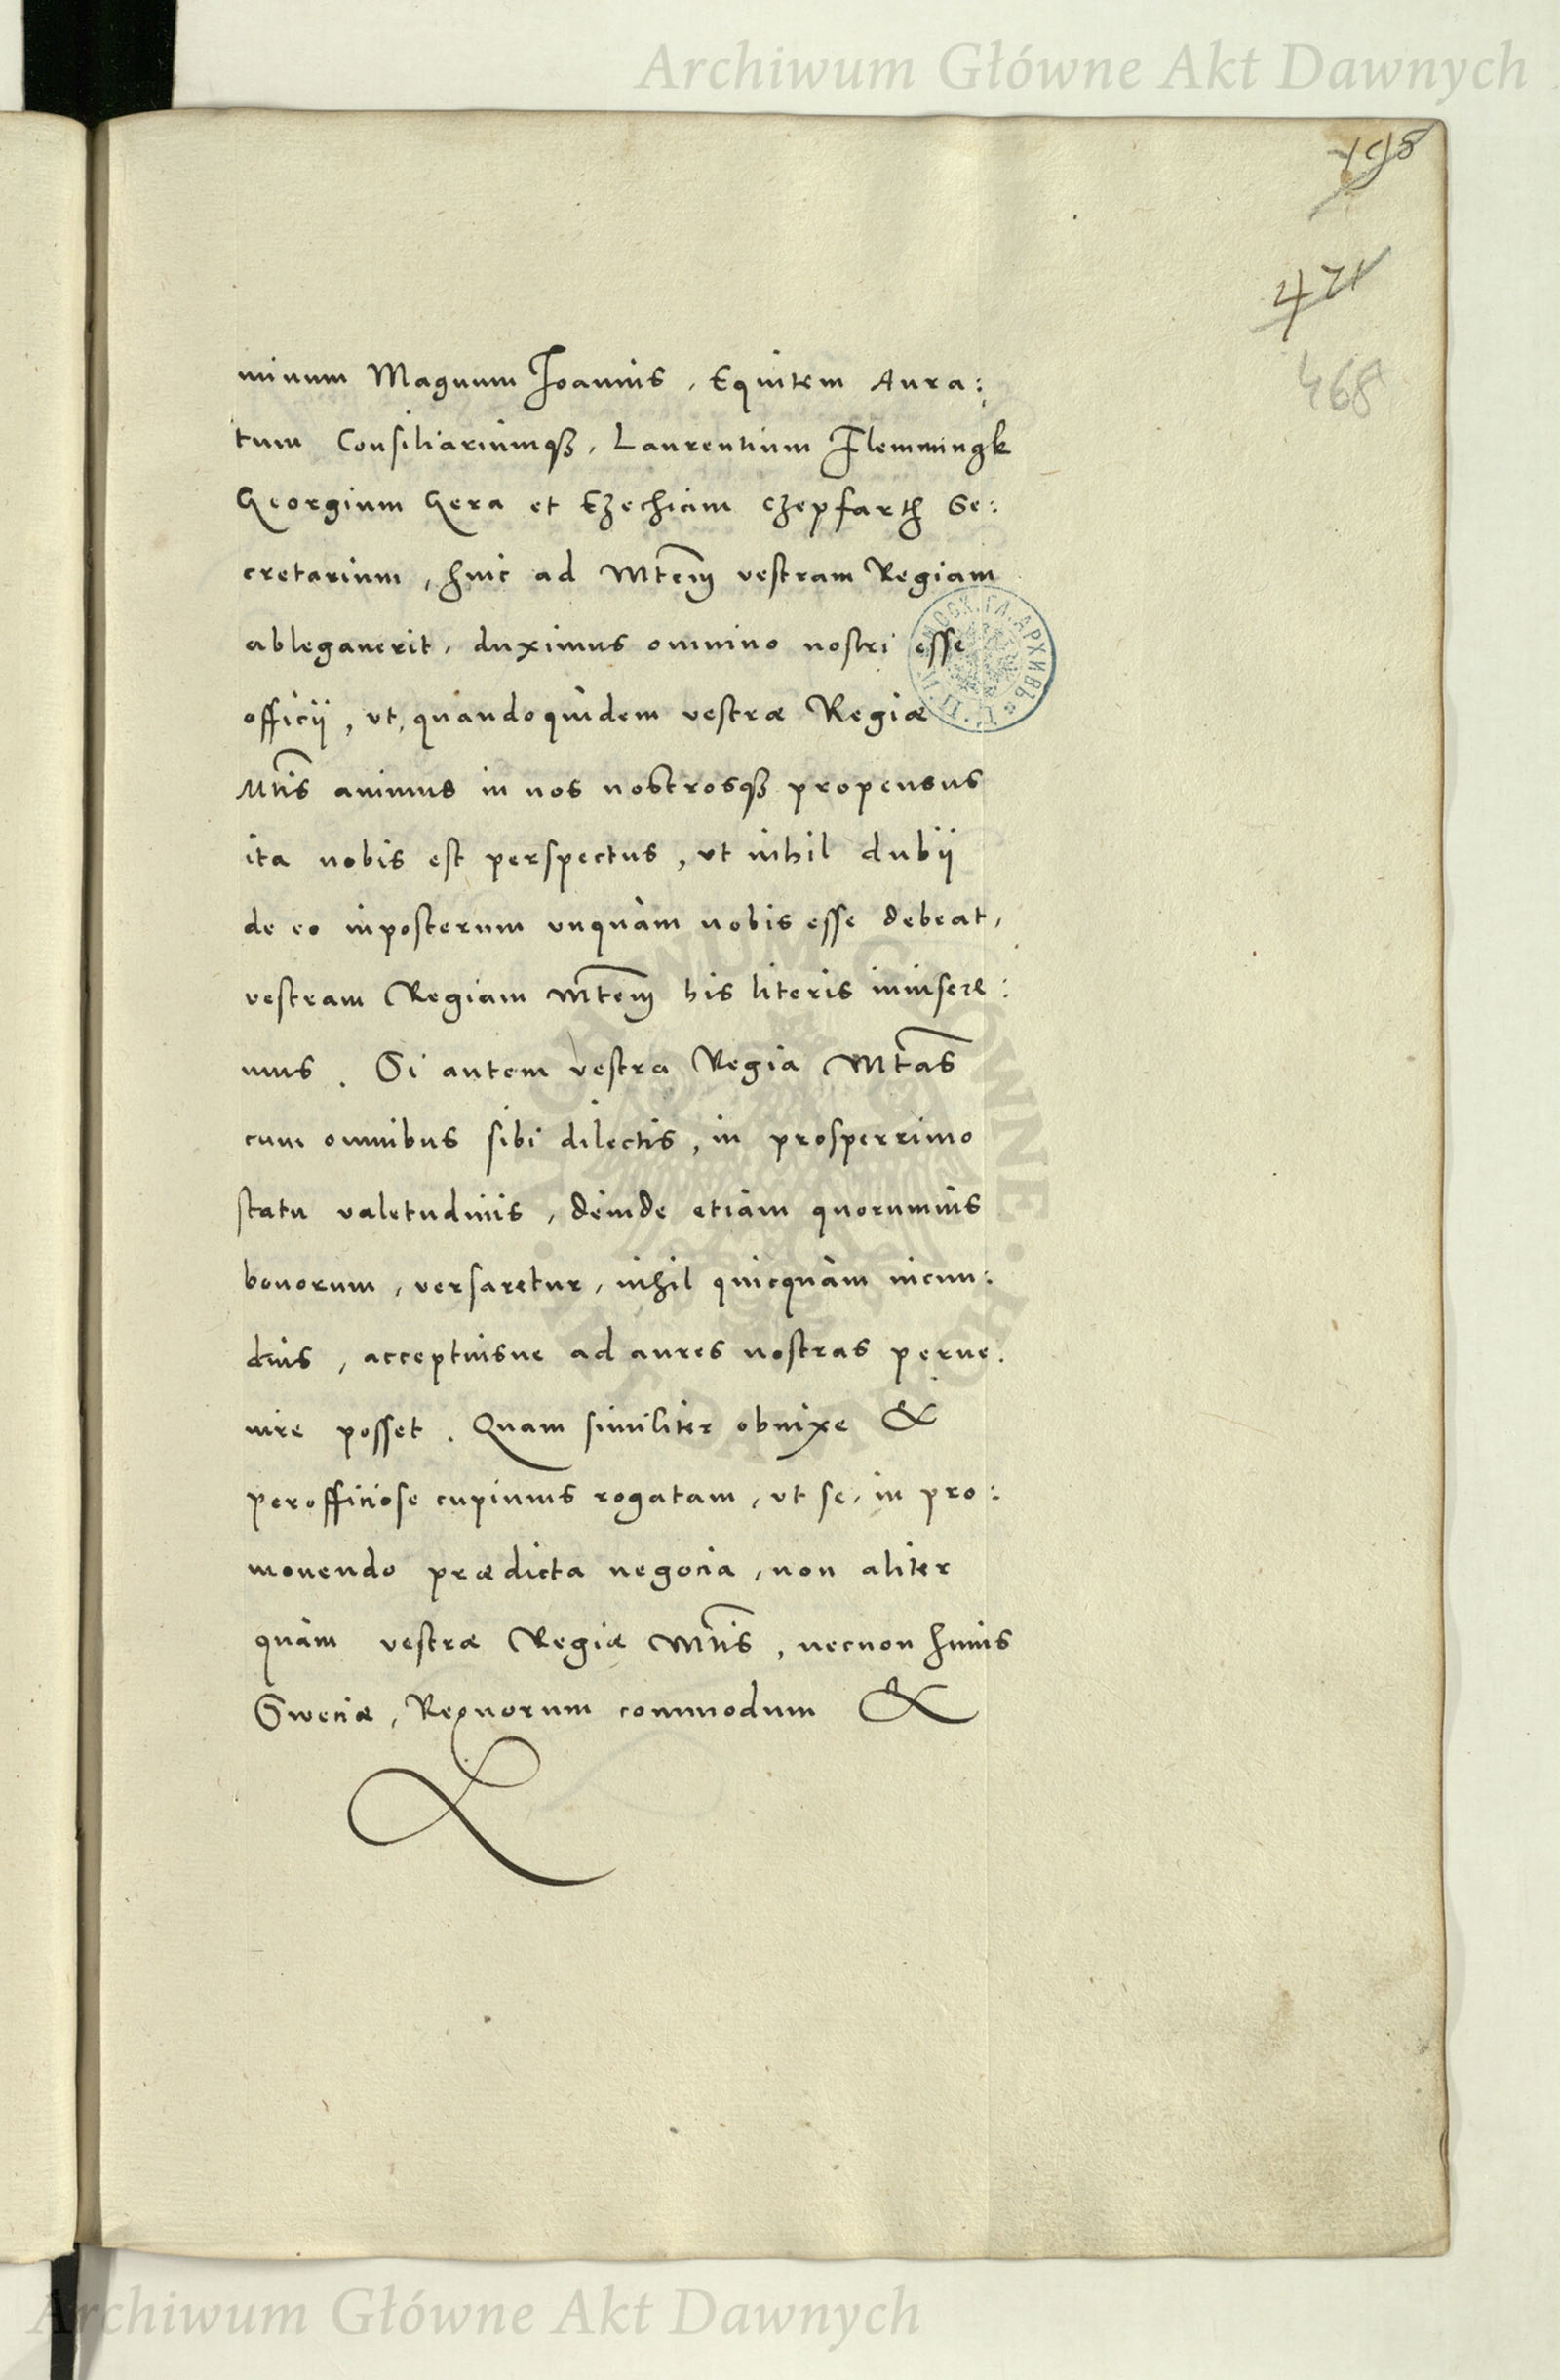 Archiwum Główne Akt Dawnych
198
471
468
minum Magnum Joannis, Equitem Aura:
tum Consiliariumqȝ, Laurentium Flemmingk
Georgium Gera et Ezechiam Czepfarth Se:
cretarium, huic ad Mtem vestram Regiam
ablegauerit, duximus omnino nostri esse
officij, vt, quandoquidem vestræ Regiæ
Mtis animus in nos nostrosqȝ propensus
ita nobis est perspectus, vt nihil dubij
de eo inposterum vnquàm nobis esse debeat,
vestram Regiam Mtem his literis inuisere:
mus. Si autem vestra Regia Mtas
cum omnibus sibi dilectis, in prosperrimo
statu valetudinis, deinde etiàm quorumuis
bonorum, versaretur, nihil quicquàm iucun:
dius, acceptiusue ad aures nostras perue.
nire posset. Quam similiter obnixe &
perofficiose cupimus rogatam, vt se, in pro:
mouendo prædicta negocia, non aliter
quàm vestræ Regiæ Mtis, necnon huius
Sweciæ, Regnorum commodum &
Archiwum Główne Akt Dawnych